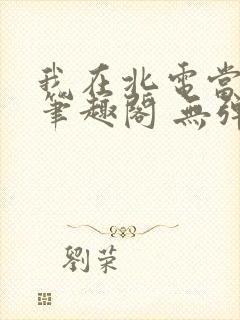 我在北電當
筆趣閣 無彈
劉荣